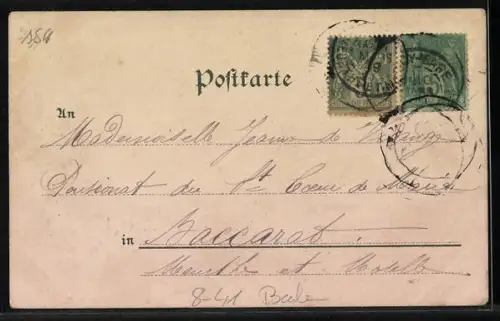 154
Postkarte
An
Mademoiselle Jeanne de
Pensionat du St Coeur de Marie
in Baccarat
Meurthe et Moselle
8-41 Bade